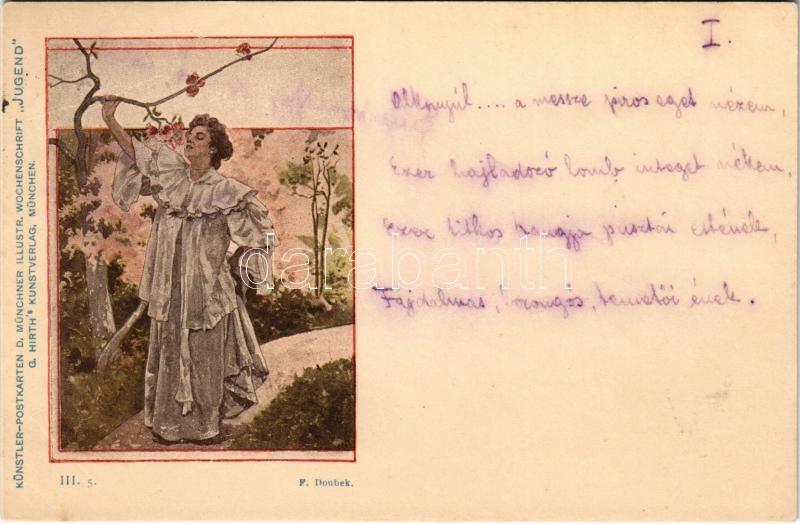 KÜNSTLER-POSTKARTEN D. MÜNCHNER ILLUSTR. WOCHENSCHRIFT „JUGEND"
G. HIRTH's KUNSTVERLAG, MÜNCHEN.
I.
Alkonyúl.... a messze piros eget nézem,
Ezer hajladozó lomb integet nékem,
Ezer titkos hangja pusztai estének,
Fájdalmas, borongós, temetői ének.
darabanth
III. 5.
F. Doubek.